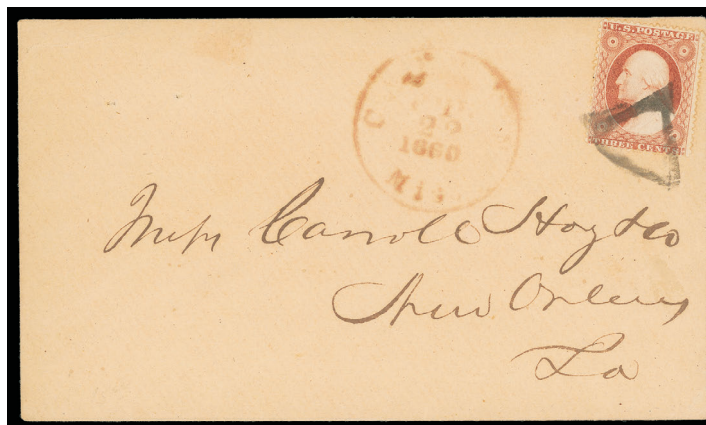 U.S. POSTAGE
THREE CENTS
22
1860
MIS
Messrs Carroll Hoy & Co
New Orleans
La